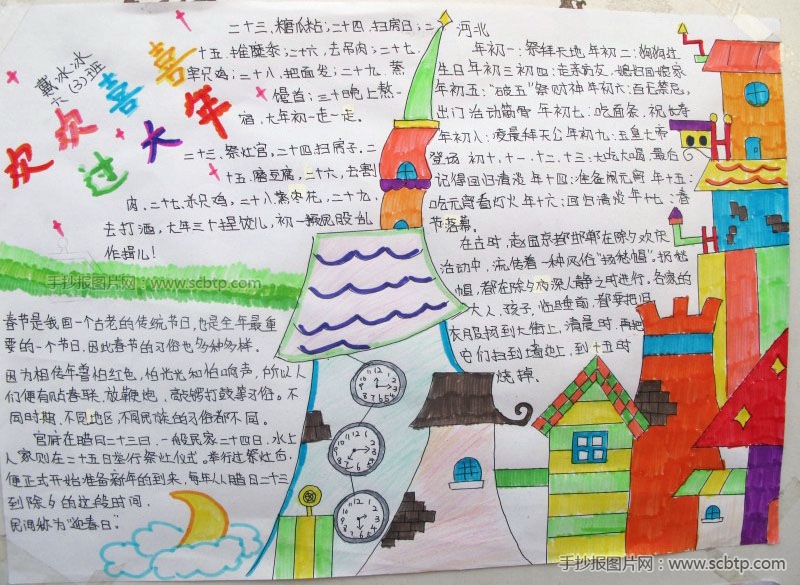 戴冰冰
六(3)班
欢欢喜喜
过大年
二十三,糖瓜粘;二十四,扫房日;二
十五,推磨条;二十六,去吊肉;二十七
宰只鸡;二十八,把面发;二十九,蒸
馒首;三十晚上熬一
宿,大年初一走一走。
二十三,祭灶官,二十四扫房子,二
十五,磨豆腐,二十六,去割
肉,二十七,杀只鸡,二十八蒸枣花,二十九,
去打酒,大年三十捏饺儿,初一撅屁股乱
作揖儿!
手抄报图片网:www.scbtp.com
春节是我国一个古老的传统节日,也是全年最重
要的一个节日,因此春节的习俗也多种多样。
因为相传年兽怕红色,怕光光和怕响声,所以人
们便有贴春联,放鞭炮,敲锣打鼓等习俗。不
同时期,不同地区,不同民族的习俗都不同。
官府在腊月二十三日,一般民家二十四日,水上
人家则在二十五日举行祭灶仪式。举行过祭灶后,
便正式开始准备新年的到来,每年从腊月二十三
到除夕的这段时间,
民间称为“迎春日”。
河北
年初一:祭拜天地,年初二:狗狗过
生日年初三初四:走亲访友,媳妇回娘家
年初五:“破五”祭财神年初六:百无禁忌,
出门活动筋骨年初七:吃面条,祝长寿
年初八:凌晨拜天公年初九:玉皇大帝
登场 初十,十一,十二,十三:大吃大喝,最后
记得回归清淡 年十四:准备闹元宵 年十五:
吃元宵看灯火 年十六:回归清淡 年十七:春
节落幕。
在古时,赵国京都邯郸在除夕欢庆
活动中,流传着一种风俗“扔愁帽”。扔愁
帽,都在除夕夜深人静之时进行,各家的
大人,孩子,临睡前,都要把旧
衣服扔到大街上,清晨时,再把
它们扫到墙边上,到十五时
烧掉。
手抄报图片网:www.scbtp.com